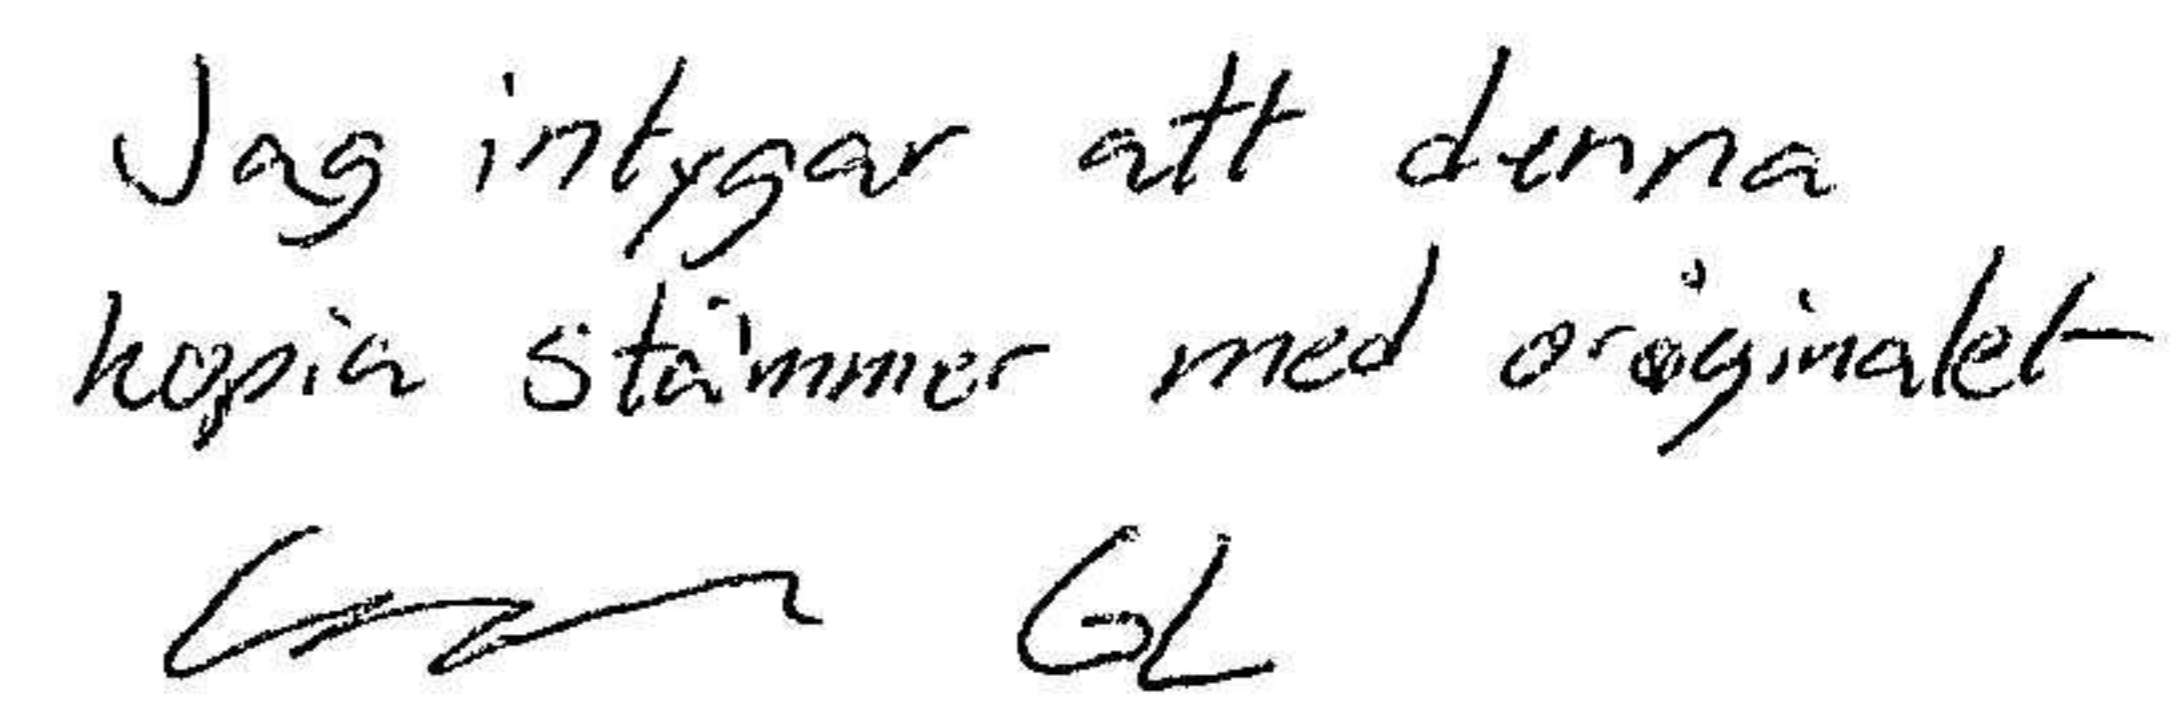 Jag intygar att denna
kopia stämmer med originalet
GL